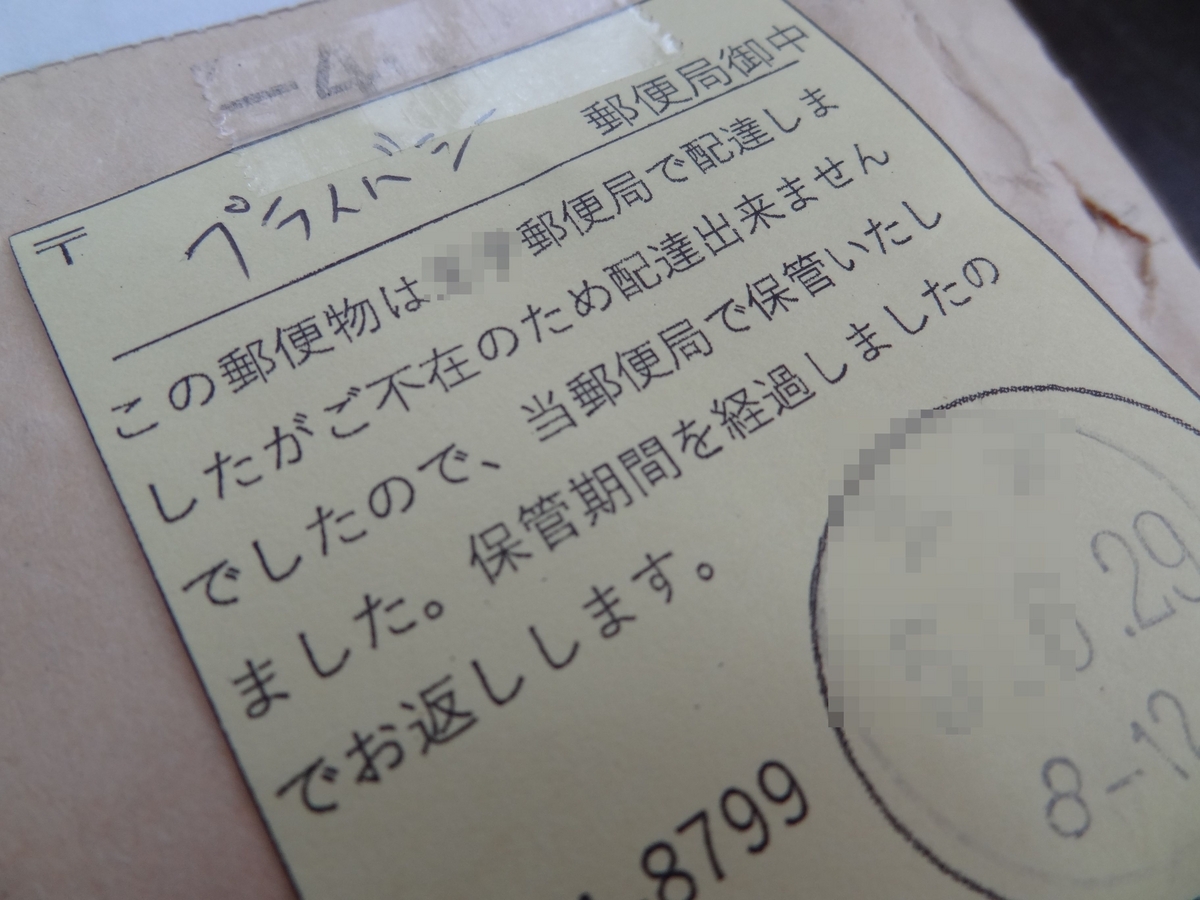 -4
〒 プライバシー
郵便局御中
この郵便物は 郵便局で配達しま
したがご不在のため配達出来ません
でしたので、当郵便局で保管いたし
ました。保管期間を経過しましたの
でお返しします。
.29
8-12
-8799